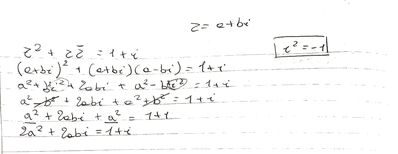 z = a+bi
z² + z z̄ = 1+i
i² = -1
(a+bi)² + (a+bi)(a-bi) = 1+i
a² + b²i² + 2abi + a² - b²i² = 1+i
a² - b² + 2abi + a² + b² = 1+i
a² + 2abi + a² = 1+i
2a² + 2abi = 1+i